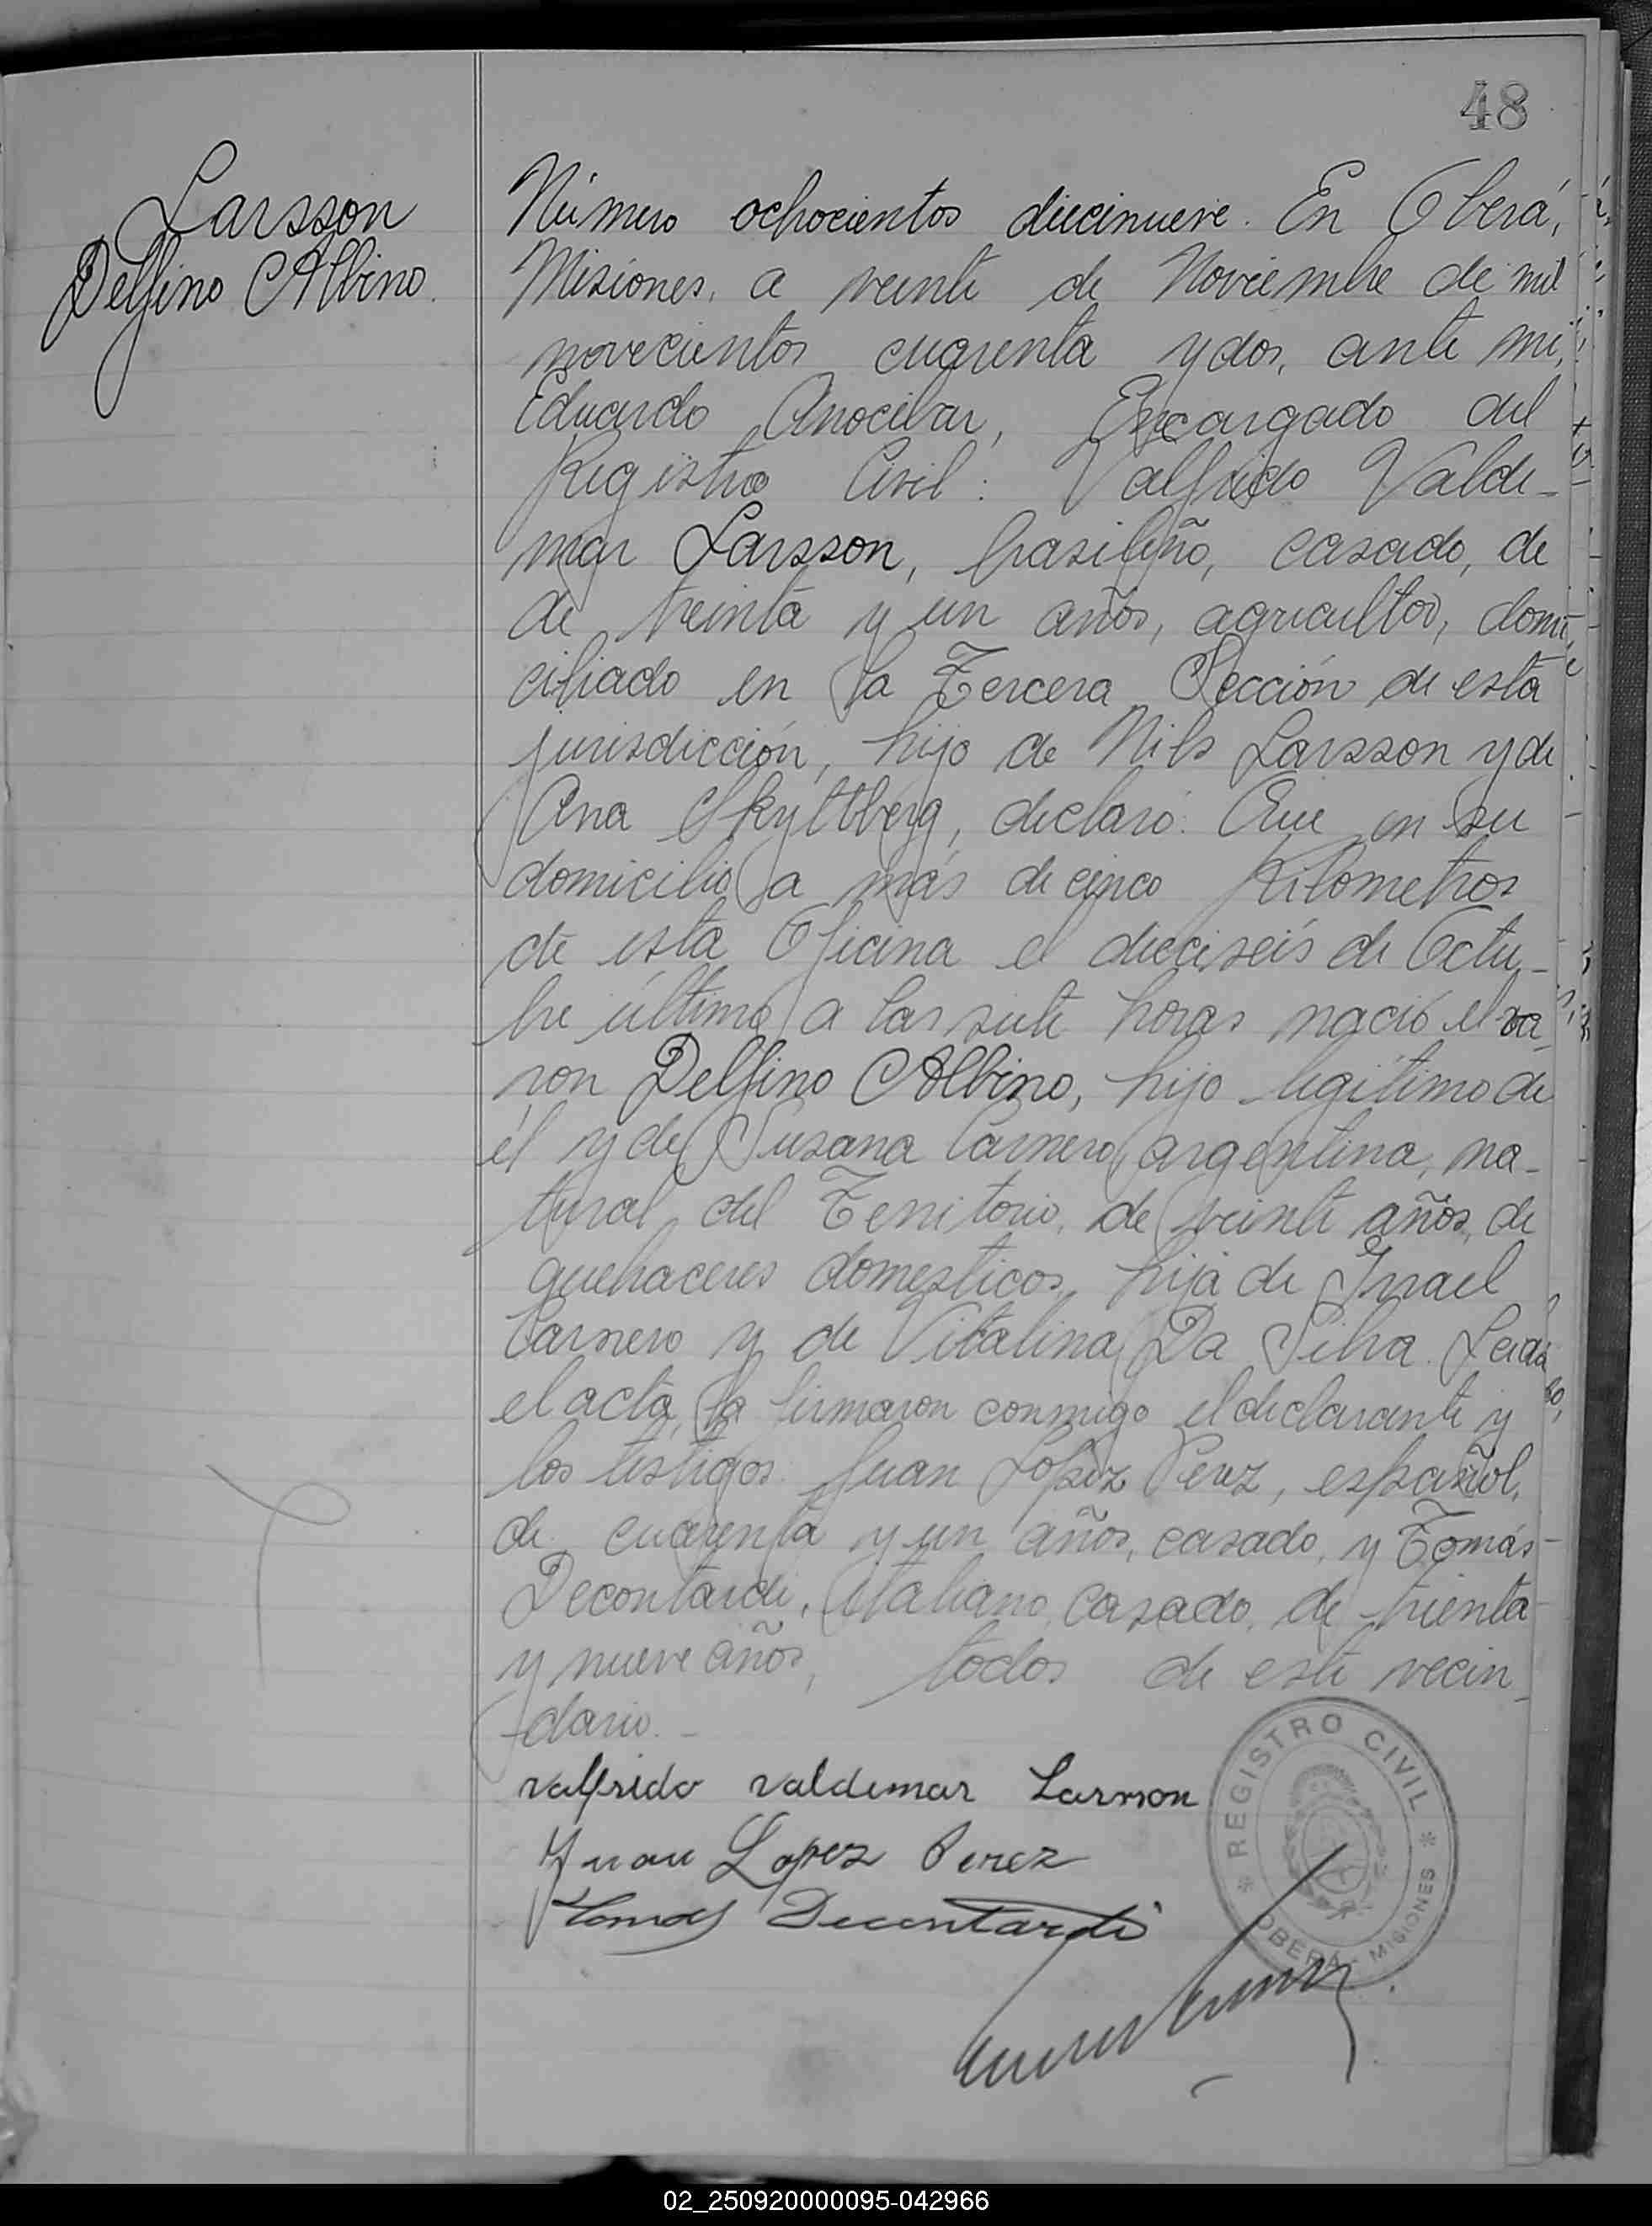 48
Larsson
Delfino Albino.
Número ochocientos diecinueve. En Oberá,
Misiones, a veinte de Noviembre de mil
novecientos cuarenta y dos, ante mi,
Eduardo Anocibar, Encargado del
Registro Civil: Valfrido Valde-
mar Larsson, brasileño, casado, de
de treinta y un años, agricultor, domi-
ciliado en la Tercera Sección de esta
jurisdicción, hijo de Nils Larsson y de
Ana Skyttberg, declaró: Que en su
domicilio a más de cinco Kilometros
de esta Oficina el dieciseis de Octu-
bre último a las siete horas nació el va-
ron Delfino Albino, hijo legítimo de
él y de Susana Carnero, argentina, na-
tural del Territorio, de veinte años, de
quehaceres domesticos, hija de Israel
Carnero y de Vitalina Da Silva. Leida
el acta, la firmaron conmigo el declarante y
los testigos: Juan López Pérez, español,
de cuarenta y un años, casado, y Tomás
Decontardi, italiano, casado, de trienta
y nueve años, todos de este vecin-
dario.-
Valfrido Valdemar Larsson
Juan Lopez Perez
Tomas Decontardi
REGISTRO CIVIL
OBERÁ - MISIONES
02_250920000095-042966